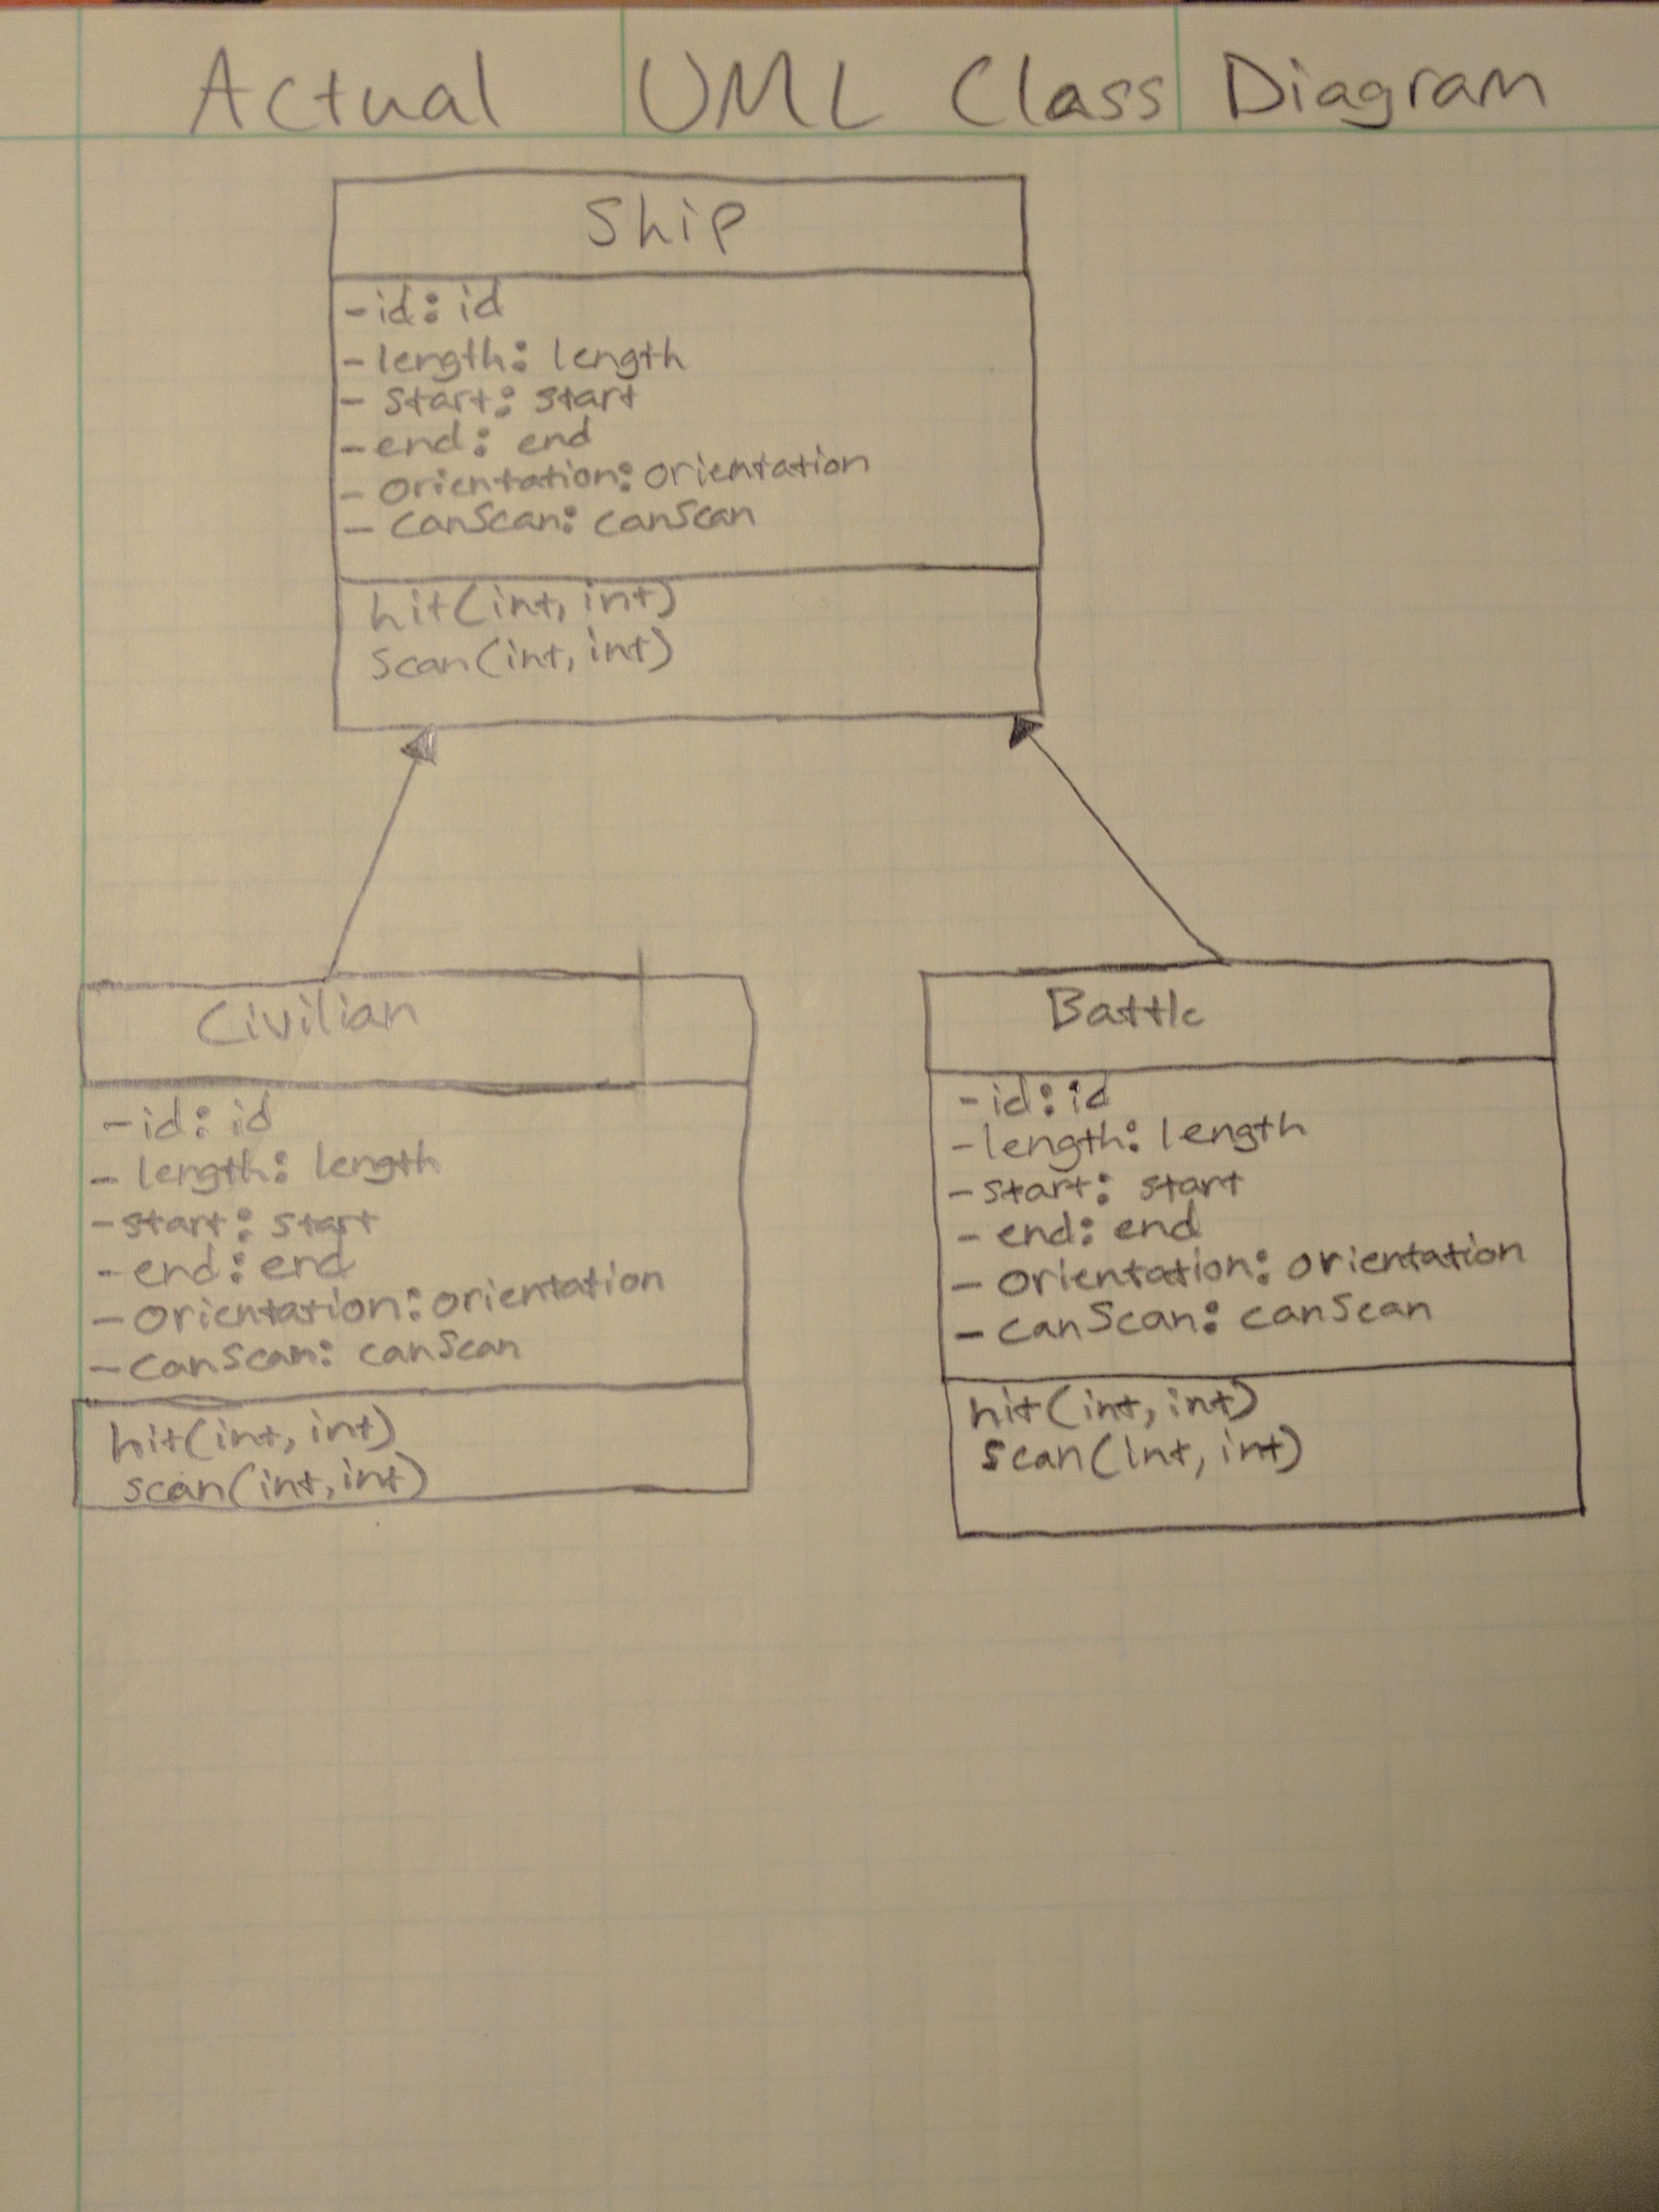 Actual UML Class Diagram
Ship
-id: id
-length: length
- start: start
-end: end
- orientation: orientation
- canScan: canScan
hit(int, int)
scan(int, int)
Civilian
-id: id
- length: length
-start: start
-end: end
-orientation: orientation
-canScan: canScan
hit(int, int)
scan(int, int)
Battle
-id: id
-length: length
-start: start
- end: end
- orientation: orientation
- canScan: canScan
hit(int, int)
scan(int, int)